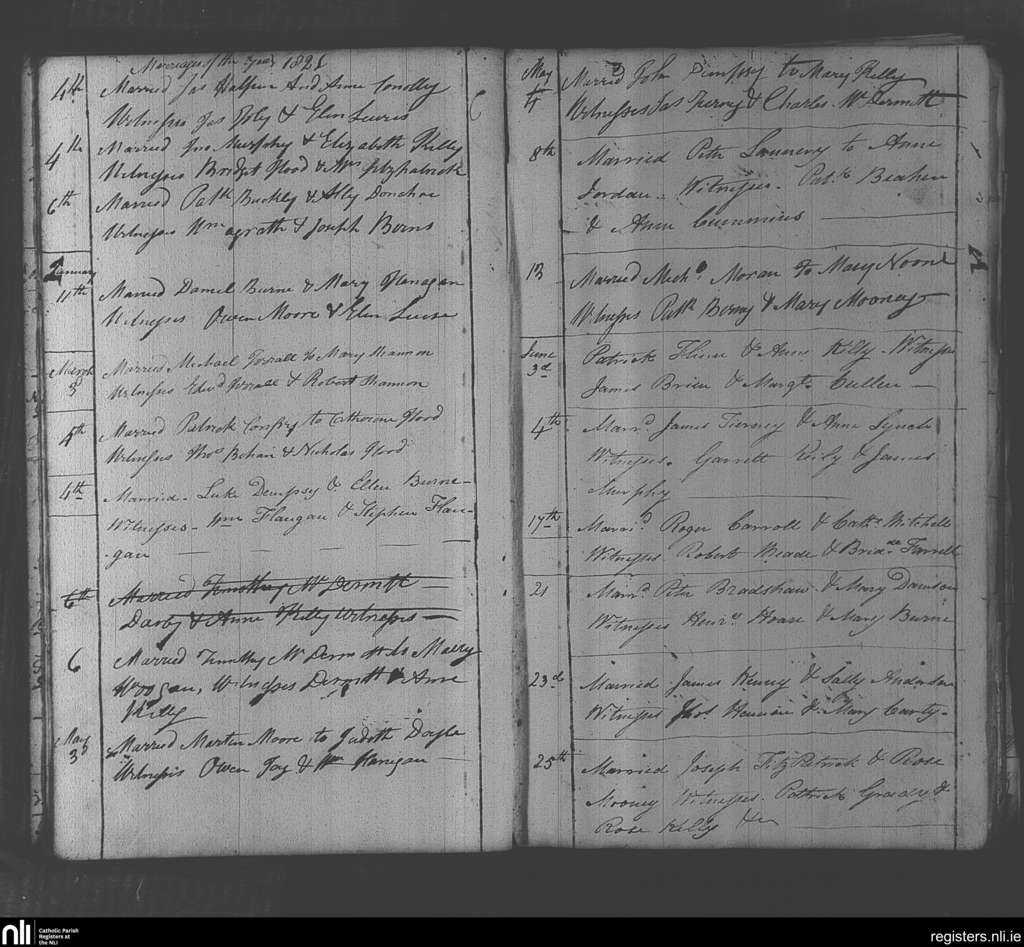 Marriages of the year 1821
4th Married Jas Halpin And Anne Conolly
Witnesses Jas Foley & Elen Lewis
4th Married Jno Murphy & Elizabeth Kelly
Witnesses Bridget Flood & Wm Fitzpatrick
6th Married Patk Buckly & Donahoe
Witnesses Wm agrath & Joseph Berns
January
11th Married Daniel Burne & Mary Flanagan
Witnesses Owen Moore & Elen
March
3 Married Michael to Mary Shannon
Witnesses Edwd & Robert Shannon
4th Married Patrick Conroy to Catherine Flood
Witnesses Thos Behan & Nicholas Flood
4th Married - Luke Dempsey & Ellen Burne -
Witnesses - Wm Flangan & Stephen Flan-
gan
6th Married Timothey Mc Dermtt
Darby & Anne Kelly Witnesses
6 Married Timothy Mc Dermott to Marry
Woogan, Witnesses Dermtt & Anne
Kelly
May
3 Married Martin Moore to Judeth Doyle
Witnesses Owen Fay & Wm Flanigan
May
4 Married John Dempsy to Mary Kelly
Witnesses Jas Tierney & Charles Mc Dermtt
8th Married Peter to Anne
Jordan. Witnesses. Patk
& Anne Cummins
13 Married Michl. Moran to Mary Noone
Witnesses Patk Berny & Mary Mooney
June
3d Patrick & Anne Kelly. Witnesses
James Brien & Margt. Cullen
4th Marrd. James Tierney & Anne Lynch
Witnesses. Garrett Reily & James
Murphy
17th Marrd. Roger Carroll & Cathe. Mitchell
Witnesses. Robert Meade & Farrell
21 Marrd. Peter Bradshaw & Mary Dawson
Witnesses Henry Hoare & Mary Burne
23d Married James Henry & Sally Anderson
Witnesses & Mary Carty.
25th Married Joseph FitzPatrick & Rose
Mooney Witnesses. Patrick Grady &
Rose Kelly &c
nli
Catholic Parish
Registers at
the NLI
registers.nli.ie